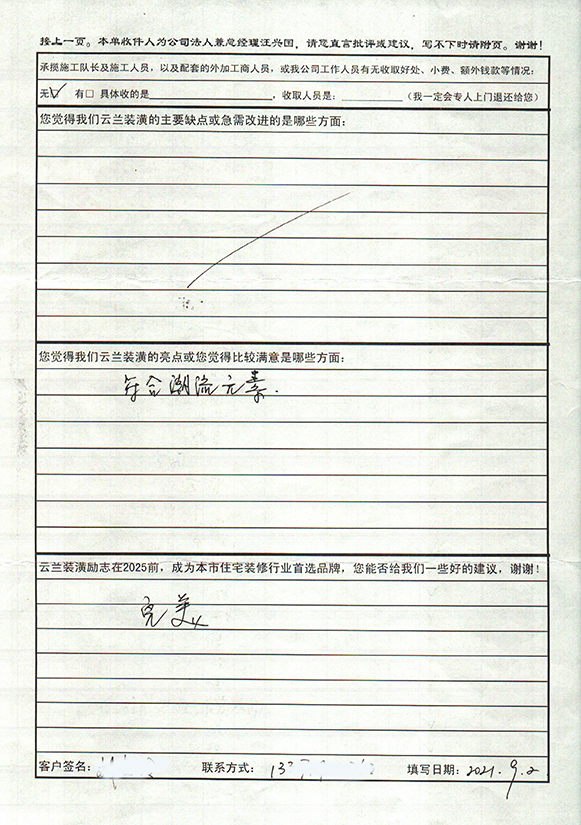 接上一页。本单收件人为公司法人兼总经理汪兴国，请您直言批评或建议，写不下时请附页。谢谢！
承揽施工队长及施工人员，以及配套的外加工商人员，或我公司工作人员有无收取好处、小费、额外钱款等情况：
无☑ 有□ 具体收的是 ，收取人员是： （我一定会专人上门退还给您）
您觉得我们云兰装潢的主要缺点或急需改进的是哪些方面：
您觉得我们云兰装潢的亮点或您觉得比较满意是哪些方面：
符合潮流元素.
云兰装潢励志在2025前，成为本市住宅装修行业首选品牌，您能否给我们一些好的建议，谢谢！
完美
客户签名： 联系方式：13 填写日期：2021.9.2